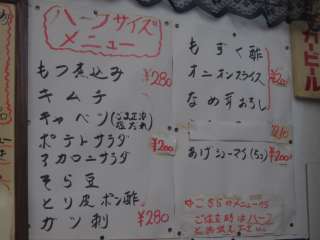 ハーフサイズ
メニュー
もつ煮込み ¥280
キムチ
キャベツ(ごま正油 塩だれ)
ポテトサラダ ¥200
マカロニサラダ
そら豆
とり皮ポン酢
ガツ刺 ¥280
もずく酢
オニオンスライス ¥200
なめ茸おろし
あげシューマイ(5コ) ¥200
※こちらのメニューから
ご注文時はハーフ